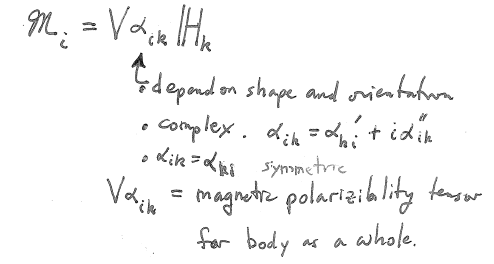 𝓜ᵢ = Vαᵢₖ ℍₖ
• depend on shape and orientation
• complex. αᵢₖ = αₖᵢ′ + iαᵢₖ″
• αᵢₖ = αₖᵢ symmetric
Vαᵢₖ = magnetic polarizibility tensor
for body as a whole.